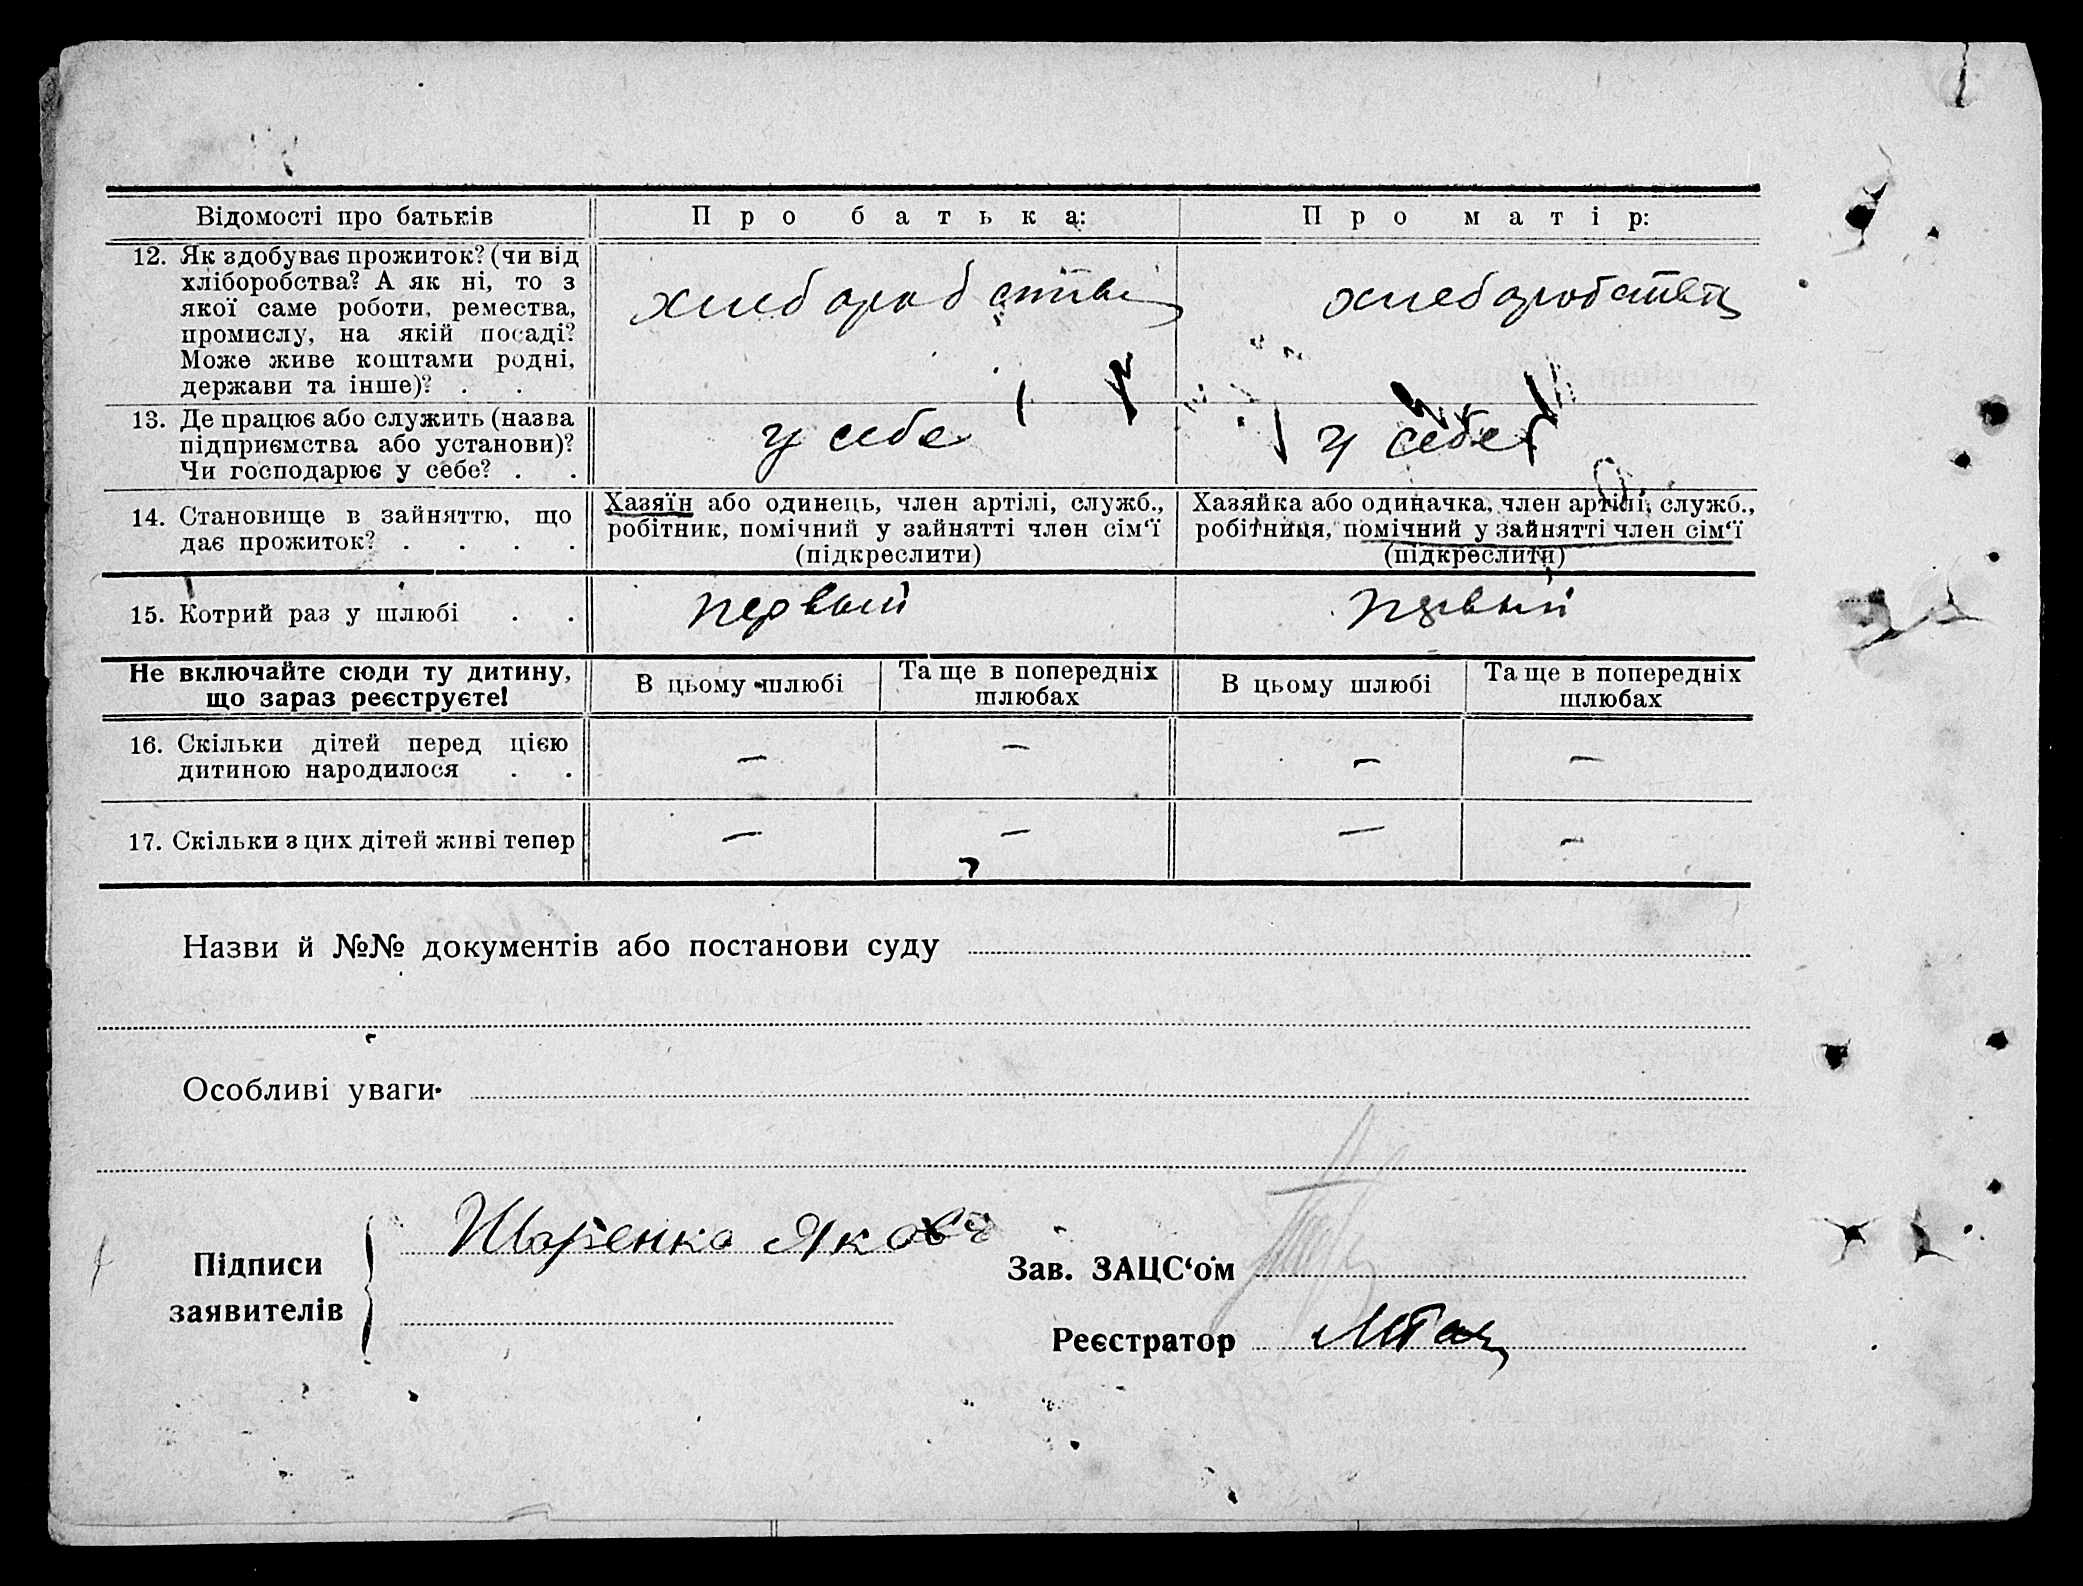 Відомості про батьків
Про батька:
Про матір:
12. Як здобуває прожиток? (чи від
хліборобства? А як ні, то з
якої саме роботи, ремества,
промислу, на якій посаді?
Може живе коштами родні,
держави та інше)? . .
13. Де працює або служить (назва
підприємства або установи)?
Чи господарює у себе? . .
у себе
у себе
14. Становище в зайняттю, що
дає прожиток? . . . .
Хазяїн або одинець, член артілі, служб.,
робітник, помічний у зайнятті член сім'ї
(підкреслити)
Хазяйка або одиначка, член артілі, служб.,
робітниця, помічний у зайнятті член сім'ї
(підкреслити)
15. Котрий раз у шлюбі . .
первый
первый
Не включайте сюди ту дитину,
що зараз реєструєте!
В цьому шлюбі
Та ще в попередніх
шлюбах
В цьому шлюбі
Та ще в попередніх
шлюбах
16. Скільки дітей перед цією
дитиною народилося . .
— — — —
17. Скільки з цих дітей живі тепер
— — — —
Назви й №№ документів або постанови суду
Особливі уваги
Підписи
заявителів
Яков
Зав. ЗАЦС'ом
Реєстратор